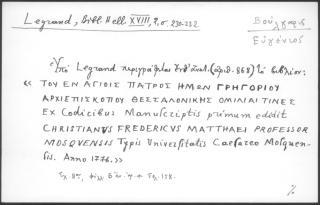 Legrand, Bibl. Hell. XVIII, 2, σ. 230-232
Βούλγαρις
Εὐγένιος
Ὑπὸ Legrand περιγράφεται ἐνθ' ἀνωτ. (ἀριθ. 868) τὸ βιβλίον:
« ΤΟΥ ΕΝ ΑΓΙΟΙΣ ΠΑΤΡΟΣ ΗΜΩΝ ΓΡΗΓΟΡΙΟΥ
ΑΡΧΙΕΠΙΣΚΟΠΟΥ ΘΕΣΣΑΛΟΝΙΚΗΣ ΟΜΙΛΙΑΙ ΤΙΝΕΣ
Ex Codicibus Manuscriptis primum edidit
CHRISTIANVS FREDERICVS MATTHAEI PROFESSOR
MOSQVENSIS Typis Universitatis Caesareo Mosquen-
sis. Anno 1776. »
Σχ. 8ον, φύλλ.